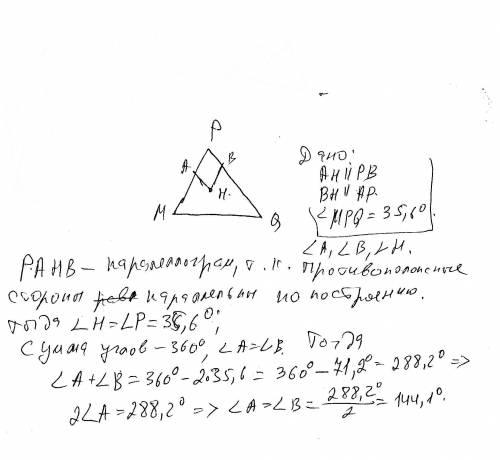 P
A
B
H.
M
Q
Дано:
AH || PB
BH || AP.
∠MPQ = 35,6°.
∠A, ∠B, ∠H.
PAHB – параллелограм, т.к. противоположные
стороны параллельны по построению.
Тогда ∠H = ∠P = 35,6°;
Сумма углов – 360°, ∠A = ∠B. Тогда
∠A + ∠B = 360° – 2·35,6 = 360° – 71,2° = 288,2° =>
2∠A = 288,2° => ∠A = ∠B = 288,2°/2 = 144,1°.